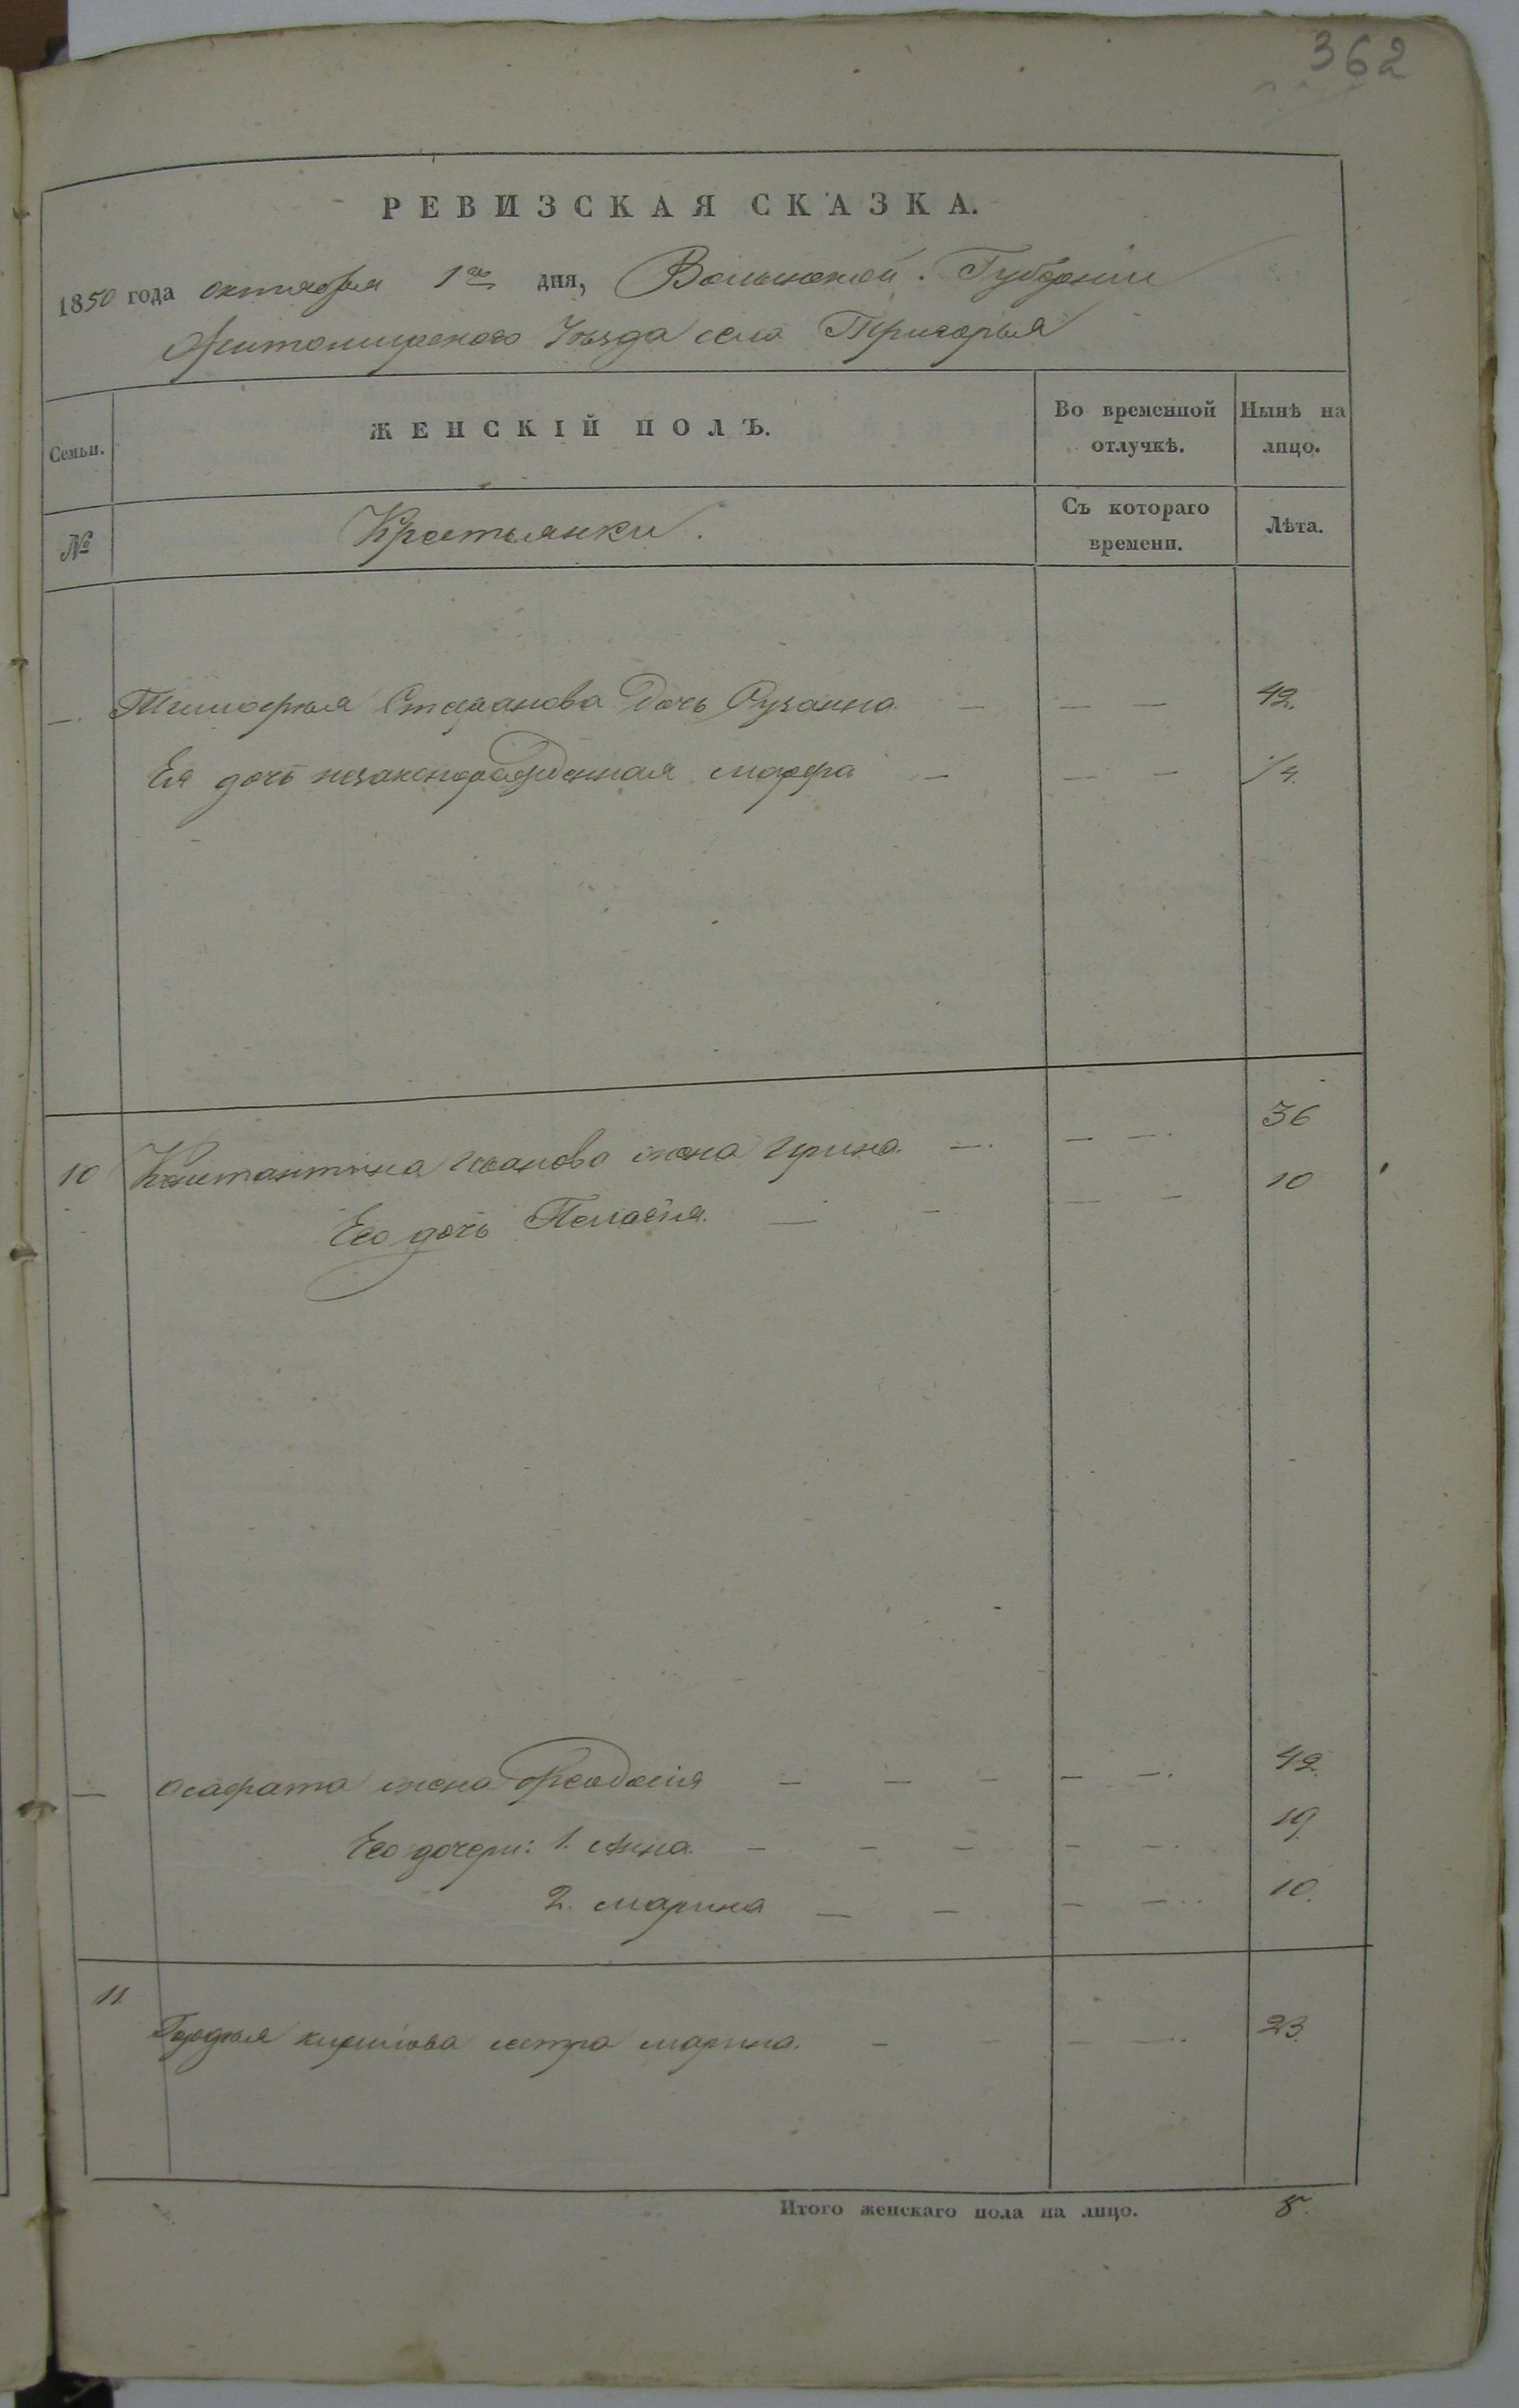 362
РЕВИЗСКАЯ СКАЗКА.
1850 года октября 1го дня, Волынской Губернии
Житомирского Уѣзда села Тригорья
Семьи. ЖЕНСКІЙ ПОЛЪ. Во временной отлучкѣ. Нынѣ на лицо.
№ Крестьянки. Съ котораго времени. Лѣта.
—. Тимофѣя Степанова дочь Сузанна — — — 42.
Ея дочь незаконорожденная марфа — — — 1/4.
10 Константина иванова жена Ирина. —. — —. 36
Его дочь Пелагія. — - — - 10
— осафата жена Феодосія — — - — —. 42.
Его дочери: 1. Анна. — - — - —. 19.
2. марина — — — -.. 10.
11. кирилова сестра марина. - - — —.. 23.
Итого женскаго пола на лицо. 8.